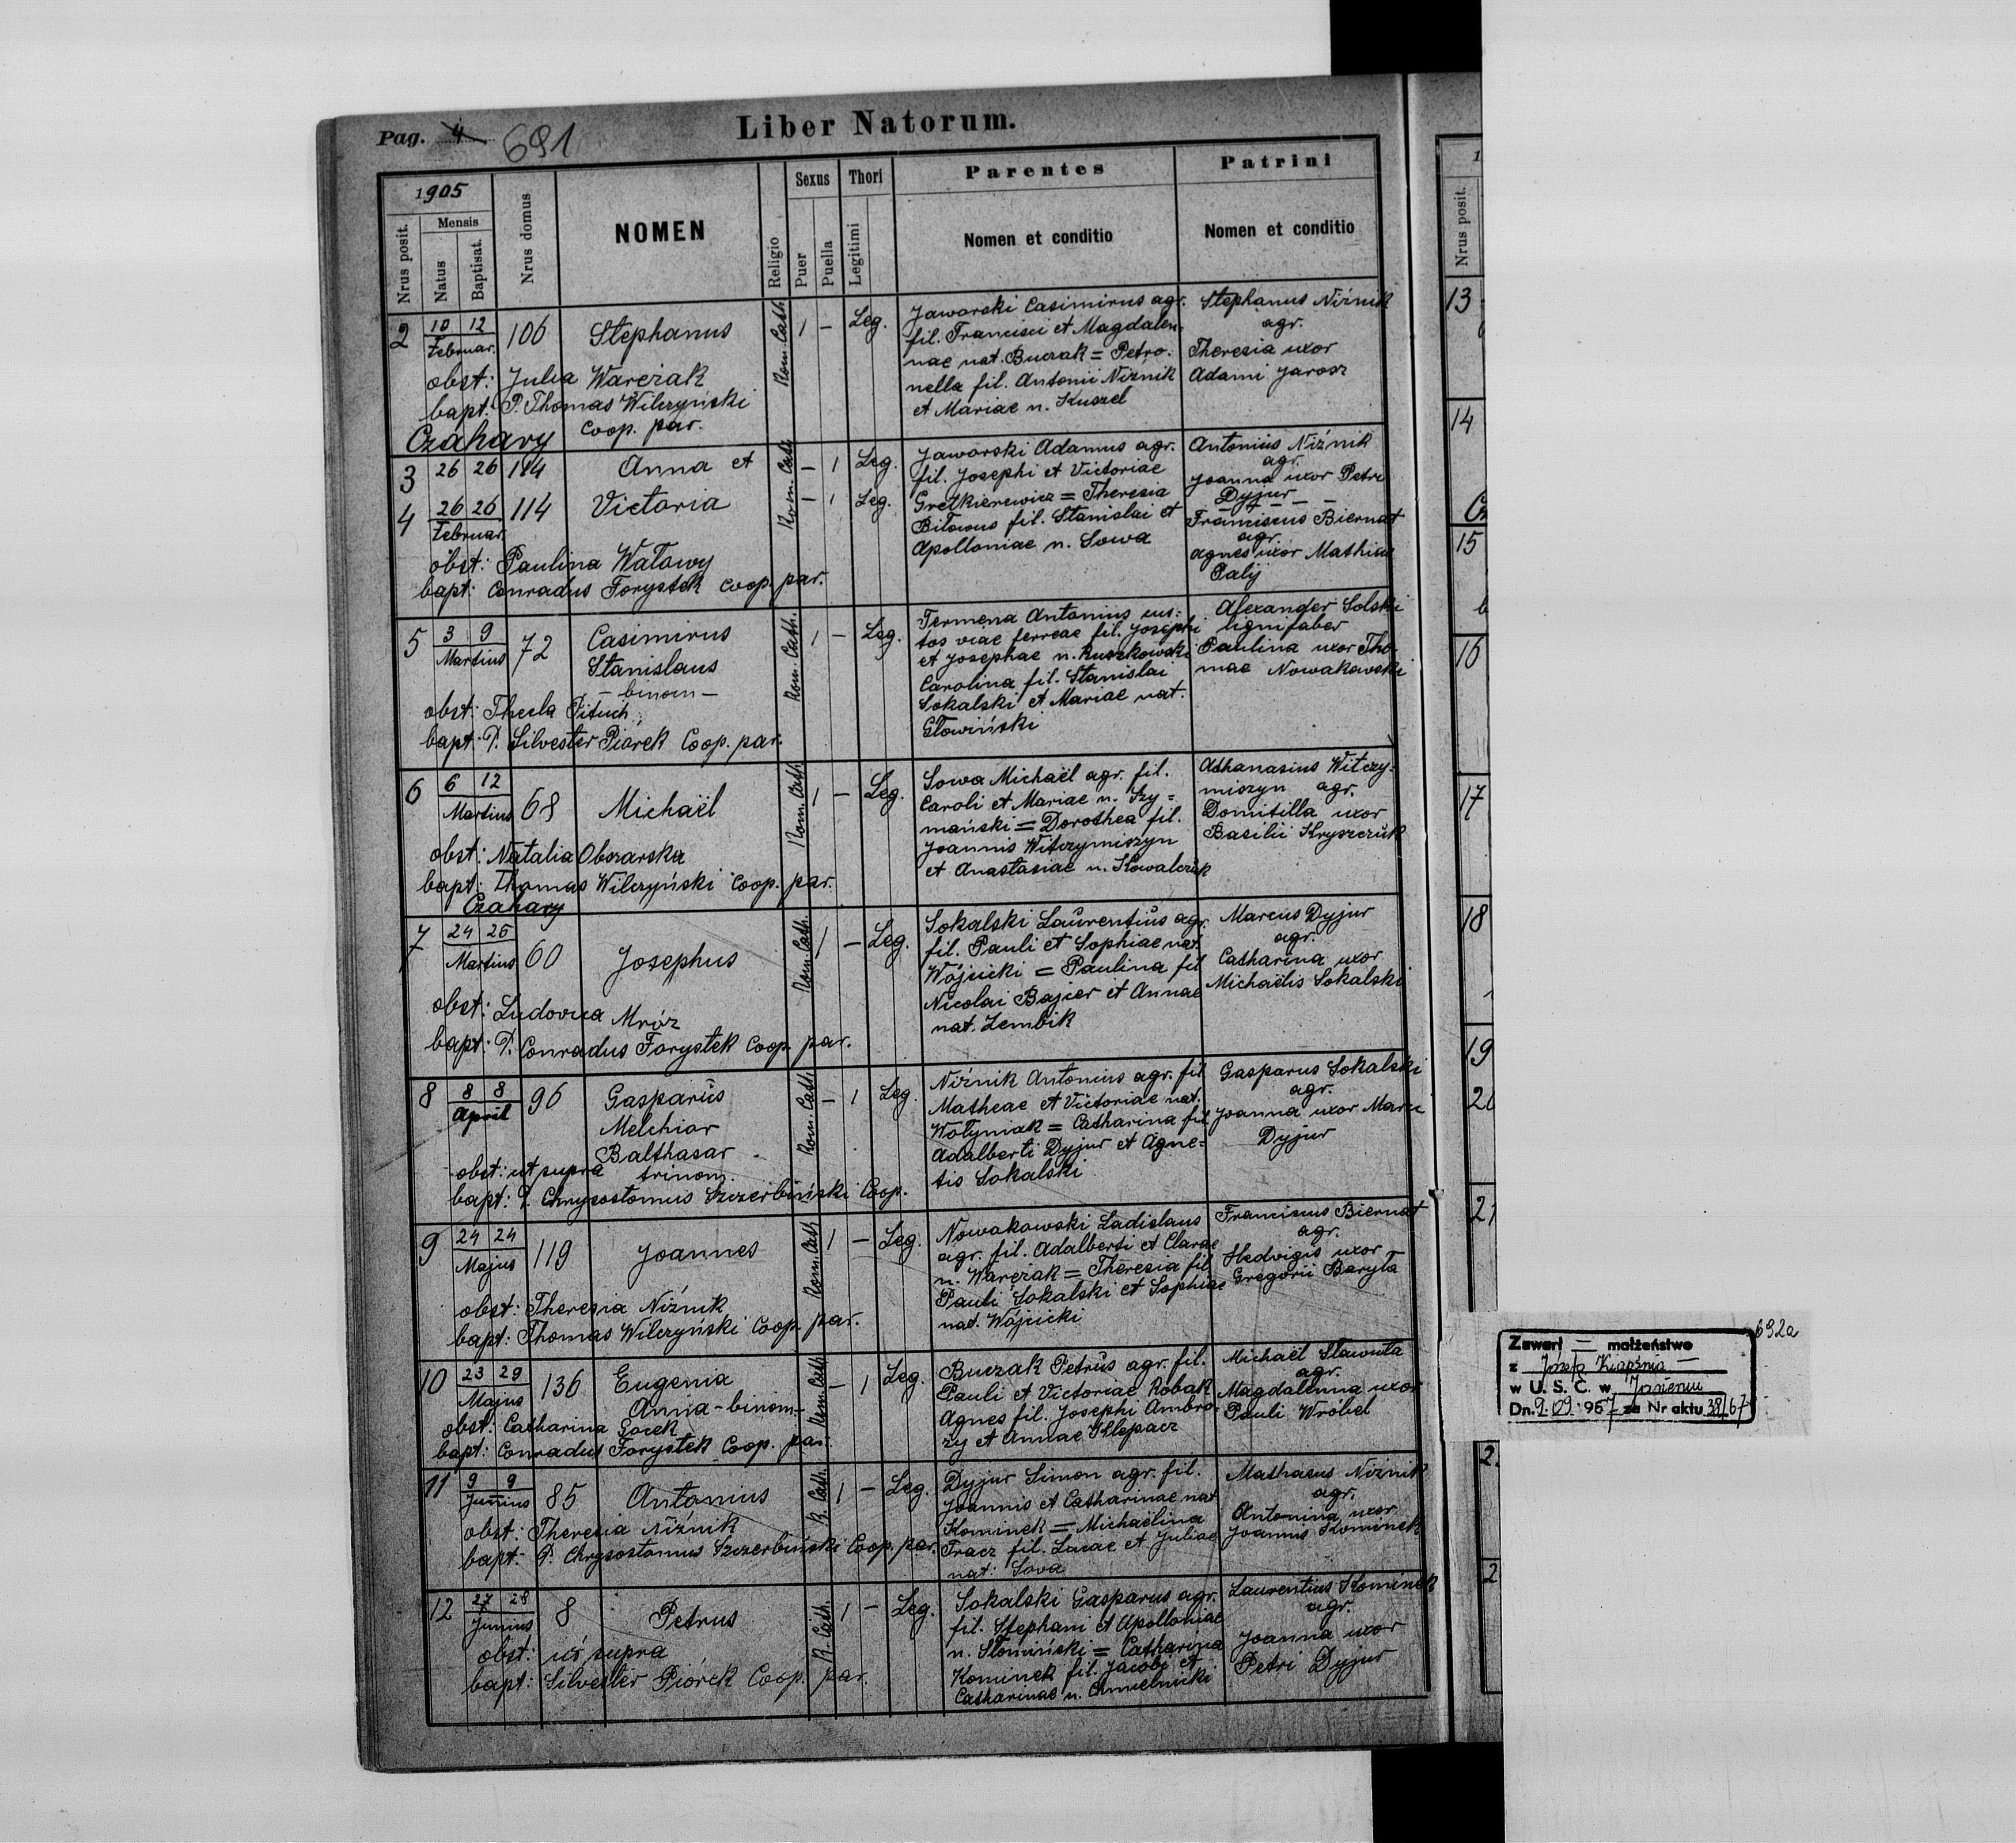 Pag. 4 691
Liber Natorum.
1905
Nrus posit.
Mensis
Natus
Baptisat.
Nrus domus
NOMEN
Religio
Sexus
Puer
Puella
Thori
Legitimi
Parentes
Nomen et conditio
Patrini
Nomen et conditio
2 10 12 Februar. 106 Stephanus Rom. Cath. 1 – Leg.
obst: Julia Wareżak
bapt: P. Thomas Wilczyński
Coop. par.
Jaworski Casimirus agr.
fil. Francisci et Magdalen=
nae nat. Buczak = Petro.
nella fil. Antonii Niżnik
et Mariae n. Kuszel
Stephanus Niżnik
agr.
Theresia uxor
Adami Jarosz
Czahary
3 26 26 114 Anna et Rom. Cath. – 1 Leg.
4 26 26 Februar. 114 Victoria – 1 Leg.
obst: Paulina Watowy
bapt: Conradus Forystek Coop. par.
Jaworski Adamus agr.
fil. Josephi et Victoriae
Gretkierewicz = Theresia
Bitowus fil. Stanislai et
Apolloniae n. Sowa
Antonius Niżnik
agr.
Joanna uxor Petri
Dyjur
Franciscus Biernat
agr.
Agnes uxor Mathiae
Palij
5 3 9 Martius 72 Casimirus Rom. Cath. 1 – Leg.
Stanislaus
– binom –
obst: Thecla Pituch
bapt: P. Silvester Piórek Coop. par.
Termena Antonius cus=
tos viae ferreae fil. Josephi
et Josephae n. Ruszkowski
Carolina fil. Stanislai
Sokalski et Mariae nat.
Głowiński
Alexander Solski
lignifaber
Paulina uxor Tho-
mae Nowakowski
6 6 12 Martius 68 Michaël Rom. Cath. 1 – Leg.
obst: Natalia Obszarska
bapt: Thomas Wilczyński Coop. par.
Sowa Michaël agr. fil.
Caroli et Mariae n. Szy=
mański = Dorothea fil.
Joannis Witczymiszyn
et Anastasiae n. Kowalczuk
Athanasius Witczy=
miszyn agr.
Domitilla uxor
Basilii Kryszczuk
Czahary
7 24 26 Martius 60 Josephus Rom. Cath. 1 – Leg.
obst: Ludovica Mróz
bapt: P. Conradus Forystek Coop. par.
Sokalski Laurentius agr.
fil. Pauli et Sophiae nat.
Wójcicki = Paulina fil
Nicolai Bajier et Annae
nat. Zembik
Marcus Dyjur
agr.
Catharina uxor
Michaëlis Sokalski
8 8 8 April 96 Gasparus Rom. Cath. – 1 Leg.
Melchior
Balthasar
trinom.
obst: ut supra
bapt: P. Chrysostomus Szczerbiński Coop.
Niżnik Antonius agr. fil
Matheae et Victoriae nat.
Wołyniak = Catharina fil.
Adalberti Dyjur et Agne=
tis Sokalski
Gasparus Sokalski
agr.
Joanna uxor Marci
Dyjur
9 24 24 Majus 119 Joannes Rom. Cath. 1 – Leg.
obst: Theresia Niżnik
bapt: Thomas Wilczyński Coop. par.
Nowakowski Ladislaus
agr. fil. Adalberti et Clarae
n. Wareżak = Theresia fil
Pauli Sokalski et Sophiae
nat. Wójcicki
Franciscus Biernat
agr.
Hedvigis uxor
Gregorii Baryła
10 23 29 Majus 136 Eugenia Rom. Cath. – 1 Leg.
Anna – binom –
obst: Catharina Gorek
bapt: Conradus Forystek Coop. par.
Buczak Petrus agr. fil.
Pauli et Victoriae Robak
Agnes fil. Josephi Ambro
zy et Annae Sklepacz
Michaël Sławuta
agr.
Magdalenna uxor
Pauli Wróbel
11 9 9 Junius 85 Antonius R. Cath. 1 – Leg.
obst: Theresia Niżnik
bapt: P. Chrysostomus Szczerbiński Coop. par.
Dyjur Simon agr. fil.
Joannis et Catharinae nat
Kominek = Michaëlina
Tracz fil. Lucae et Juliae
nat: Sova
Mathaeus Niżnik
agr.
Antonina uxor
Joannis Kominek
12 27 28 Junius 8 Petrus R. Cath. 1 – Leg.
obst: ut supra
bapt: Silvester Piórek Coop. par.
Sokalski Gasparus agr.
fil. Stephani et Apolloniae
n. Słomiński = Catharina
Kominek fil. Jacobi et
Catharinae n. Chmielnicki
Laurentius Kominek
agr.
Joanna uxor
Petri Dyjur
Nrus posit.
13
14
15
16
17
18
19
21
692a
Zawarł — małżeństwo
z Józefą
w U. S. C. w Jasieniu
Dn. 9.09.1967 za Nr aktu 38/67